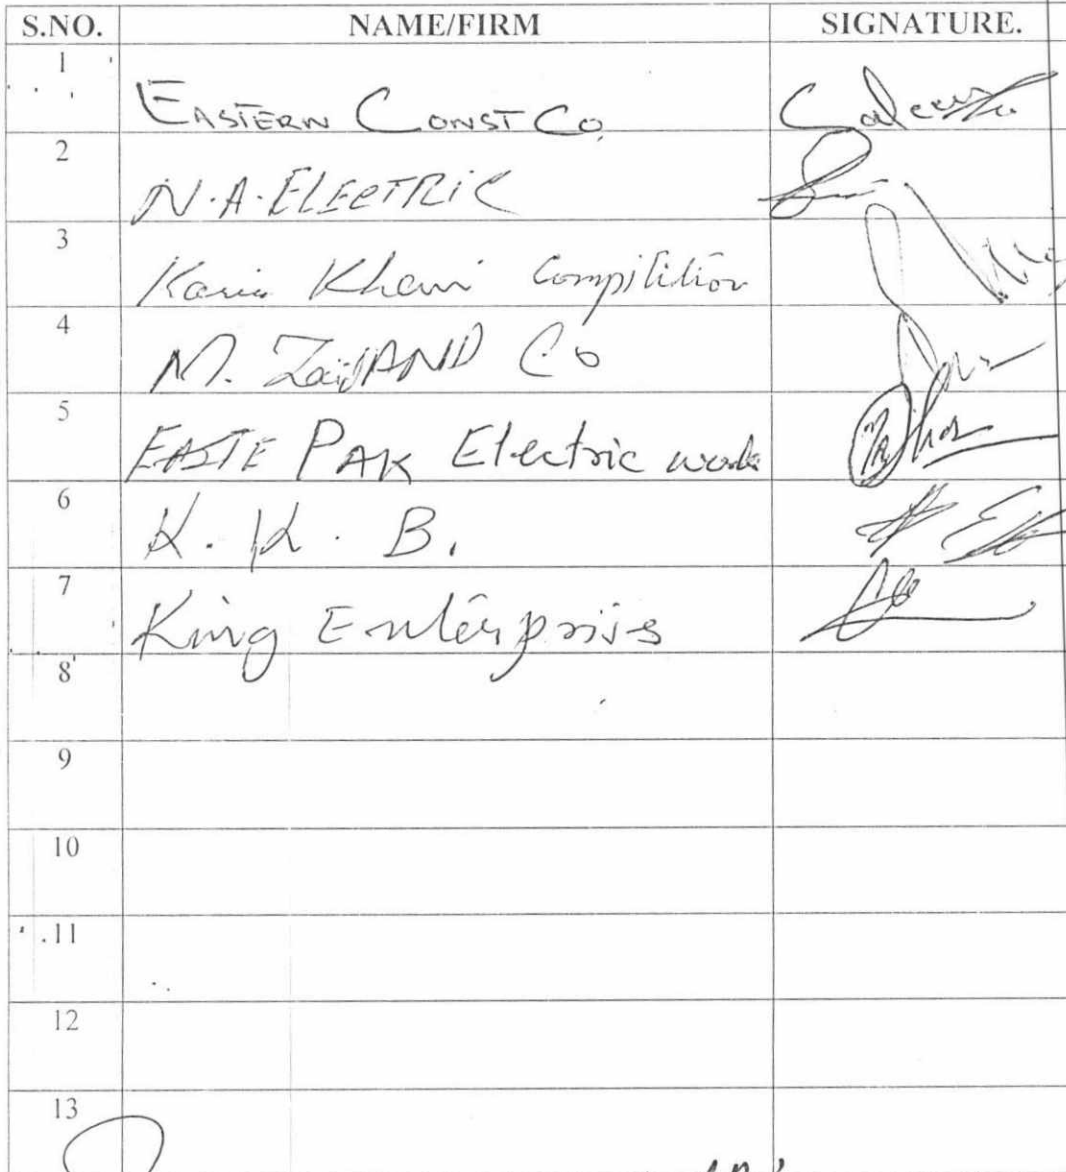 S.NO. NAME/FIRM SIGNATURE.
1 EASTERN CONST CO. Saleem
2 N.A. ELECTRIC
3 Khan Compitition
4 M. Zaid AND Co
5 EASTE PAK Electric work
6 K. K. B.
7 King Enterpriss
8
9
10
11
12
13